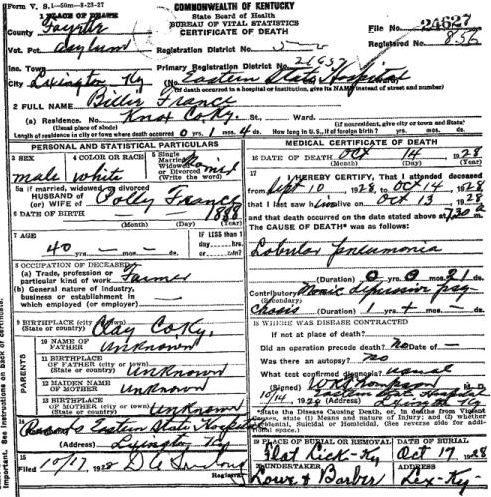 Form V. S. 1—50m—8-23-27
COMMONWEALTH OF KENTUCKY
State Board of Health
BUREAU OF VITAL STATISTICS
CERTIFICATE OF DEATH
1 PLACE OF DEATH
County Fayette
File No. 24627
Vot. Pct. asylum
Registration District No.
Registered No. 836
Inc. Town
Primary Registration District No.
City Lexington, Ky (No. Eastern State Hospital
(If death occurred in a hospital or institution, give its NAME instead of street and number)
2 FULL NAME Billie France
(a) Residence. No. Knox Co Ky. St., Ward.
(Usual place of abode) (If nonresident, give city or town and State)
Length of residence in city or town where death occurred 0 yrs. 1 mos. 4 ds. How long in U. S., if of foreign birth? yrs. mos. ds.
PERSONAL AND STATISTICAL PARTICULARS
3 SEX male
4 COLOR OR RACE white
5 Single Married Widowed or Divorced (Write the word)
5a If married, widowed, or divorced
HUSBAND of
(or) WIFE of Polly France
6 DATE OF BIRTH — — 1888
(Month) (Day) (Year)
7 AGE
IF LESS than 1 day hrs. or min.?
40 yrs. — mos. — ds.
8 OCCUPATION OF DECEASED
(a) Trade, profession or particular kind of work Farmer
(b) General nature of industry, business or establishment in which employed (or employer) —
9 BIRTHPLACE (city or town) Clay Co Ky.
(State or country)
PARENTS
10 NAME OF FATHER Unknown
11 BIRTHPLACE OF FATHER (city or town) Unknown
(State or country)
12 MAIDEN NAME OF MOTHER Unknown
13 BIRTHPLACE OF MOTHER (city or town) Unknown
(State or country)
14 Records Eastern State Hospital
(Address) Lexington Ky
15 10/17 1928
MEDICAL CERTIFICATE OF DEATH
16 DATE OF DEATH Oct 14 1928
(Month) (Day) (Year)
17 I HEREBY CERTIFY, That I attended deceased
from Sept 10 1928 to Oct 14 1928
that I last saw him alive on Oct 13 1928
and that death occurred on the date stated above at 7:30 m.
The CAUSE OF DEATH* was as follows:
Lobular pneumonia
(Duration) 0 yrs. 0 mos. 21 ds.
Contributory Manic depressive psy-
(Secondary)
chosis (Duration) 1 yrs. + mos. ds.
18 WHERE WAS DISEASE CONTRACTED
If not at place of death?
Did an operation precede death? No Date of —
Was there an autopsy? no
What test confirmed diagnosis? usual
(Signed) W R Thompson M. D.
10/14 1928 Eastern State Hospital
Lexington Ky
State the Disease Causing Death, or, in deaths from Violent Causes, state (1) Means and nature of Injury; and (2) whether Accidental, Suicidal or Homicidal. (See reverse side for additional space.)
19 PLACE OF BURIAL OR REMOVAL Flat Lick - Ky
DATE OF BURIAL Oct 17 1928
UNDERTAKER Lowe & Barber
ADDRESS Lex - Ky -
Important. See instructions on back of certificate.